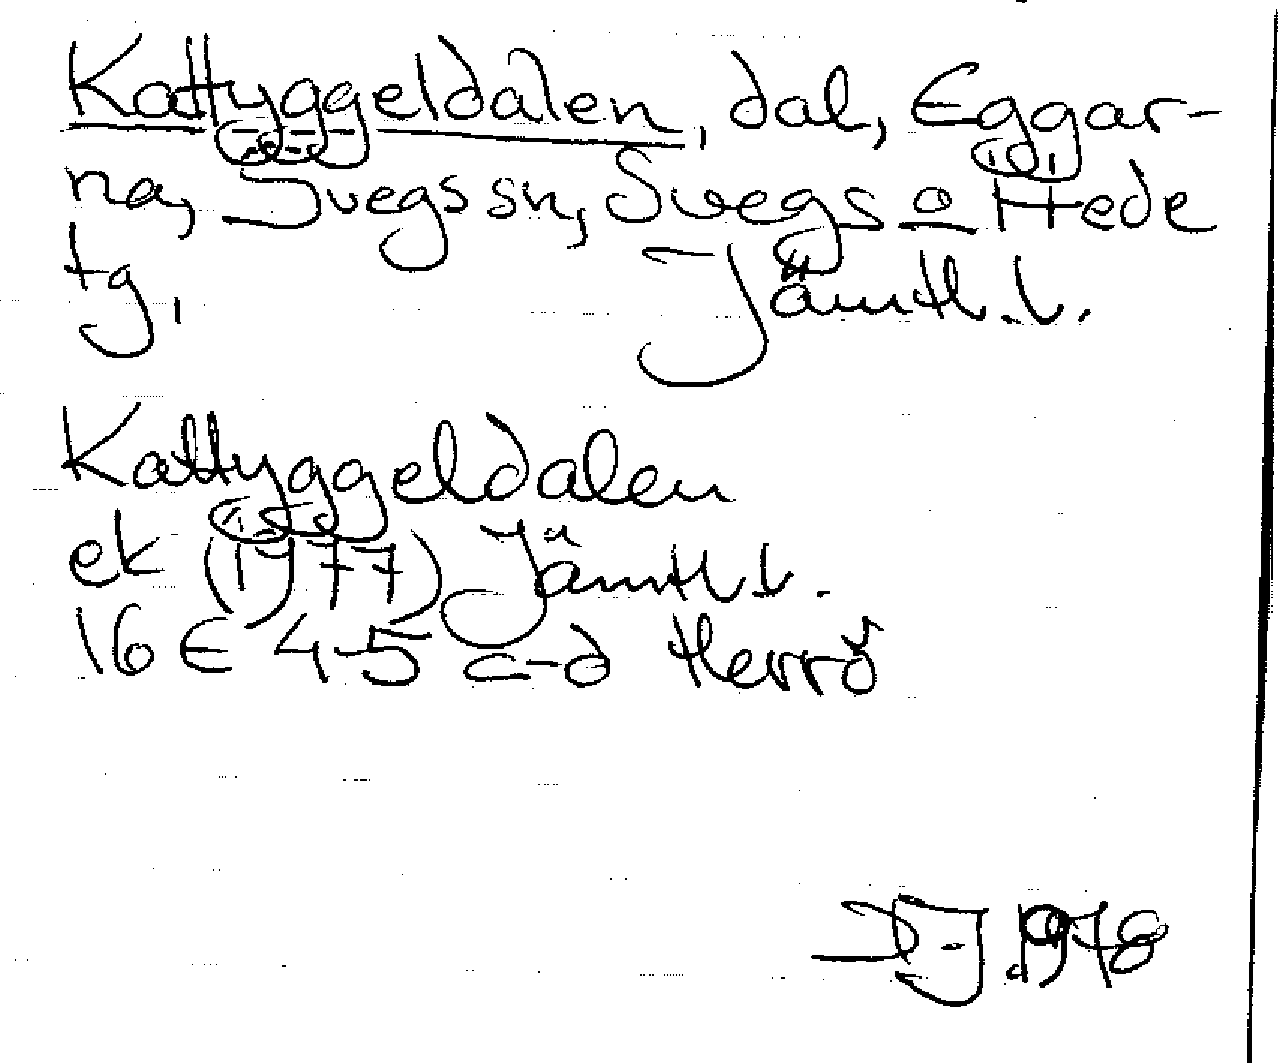 Kattyggeldalen, dal, Eggar-
na, Svegs sn, Svegs o Hede
tg,
Jämtl. l.
Kattyggeldalen
ek (1977) Jämtl. l.
16 E 4-5 c-d Herrö
1978